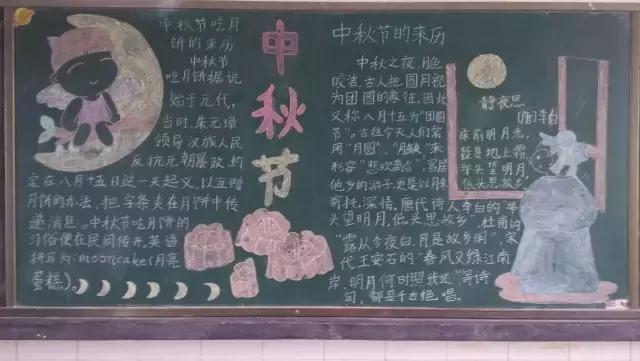 中秋节吃月
饼的来历
中秋节
吃月饼据说
始于元代,
当时,朱元璋
领导汉族人民
反抗元朝暴政,约
定在八月十五日这一天起义,以互赠
月饼的办法,把字条夹在月饼中传
递消息。中秋节吃月饼的
习俗便在民间传开,英语
拼写为:mooncake(月亮
蛋糕)。
中
秋
节
中秋节的来历
中秋之夜,月色
皎洁,古人把圆月视
为团圆的象征,因此
又称八月十五为“团圆
节”。古往今天人们常
用“月圆”、“月缺”来
形容“悲欢离合”,客居
他乡的游子,更是以月来
寄托深情。唐代诗人李白的“举
头望明月,低头思故乡”,杜甫的
“露从今夜白,月是故乡明”,宋
代王安石的“春风又绿江南
岸,明月何时照我还”等诗
句,都是千古绝唱。
静夜思
[唐]李白
床前明月光,
疑是地上霜。
举头望明月,
低头思故乡。